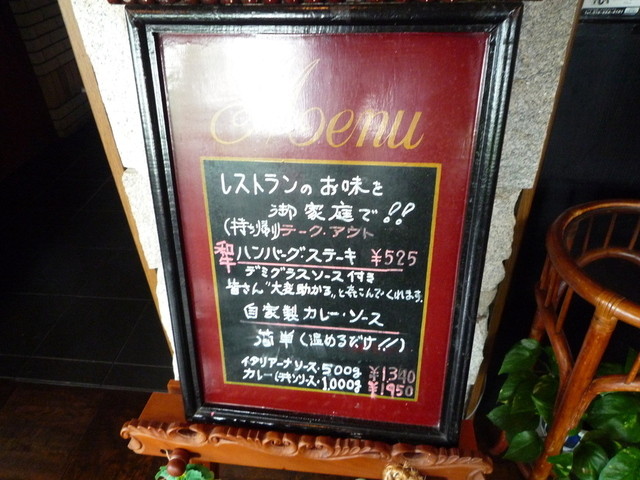 Menu
レストランのお味を
御家庭で!!
(持ち帰り)テーク・アウト
和牛ハンバーグ・ステーキ ¥525
デミグラスソース付き
皆さん"大変助かる"と喜こんでくれます。
自家製カレー・ソース
簡単(温めるだけ!!)
イタリアーナソース・500g ¥1340
カレー(チキンソース・1,000g ¥1950